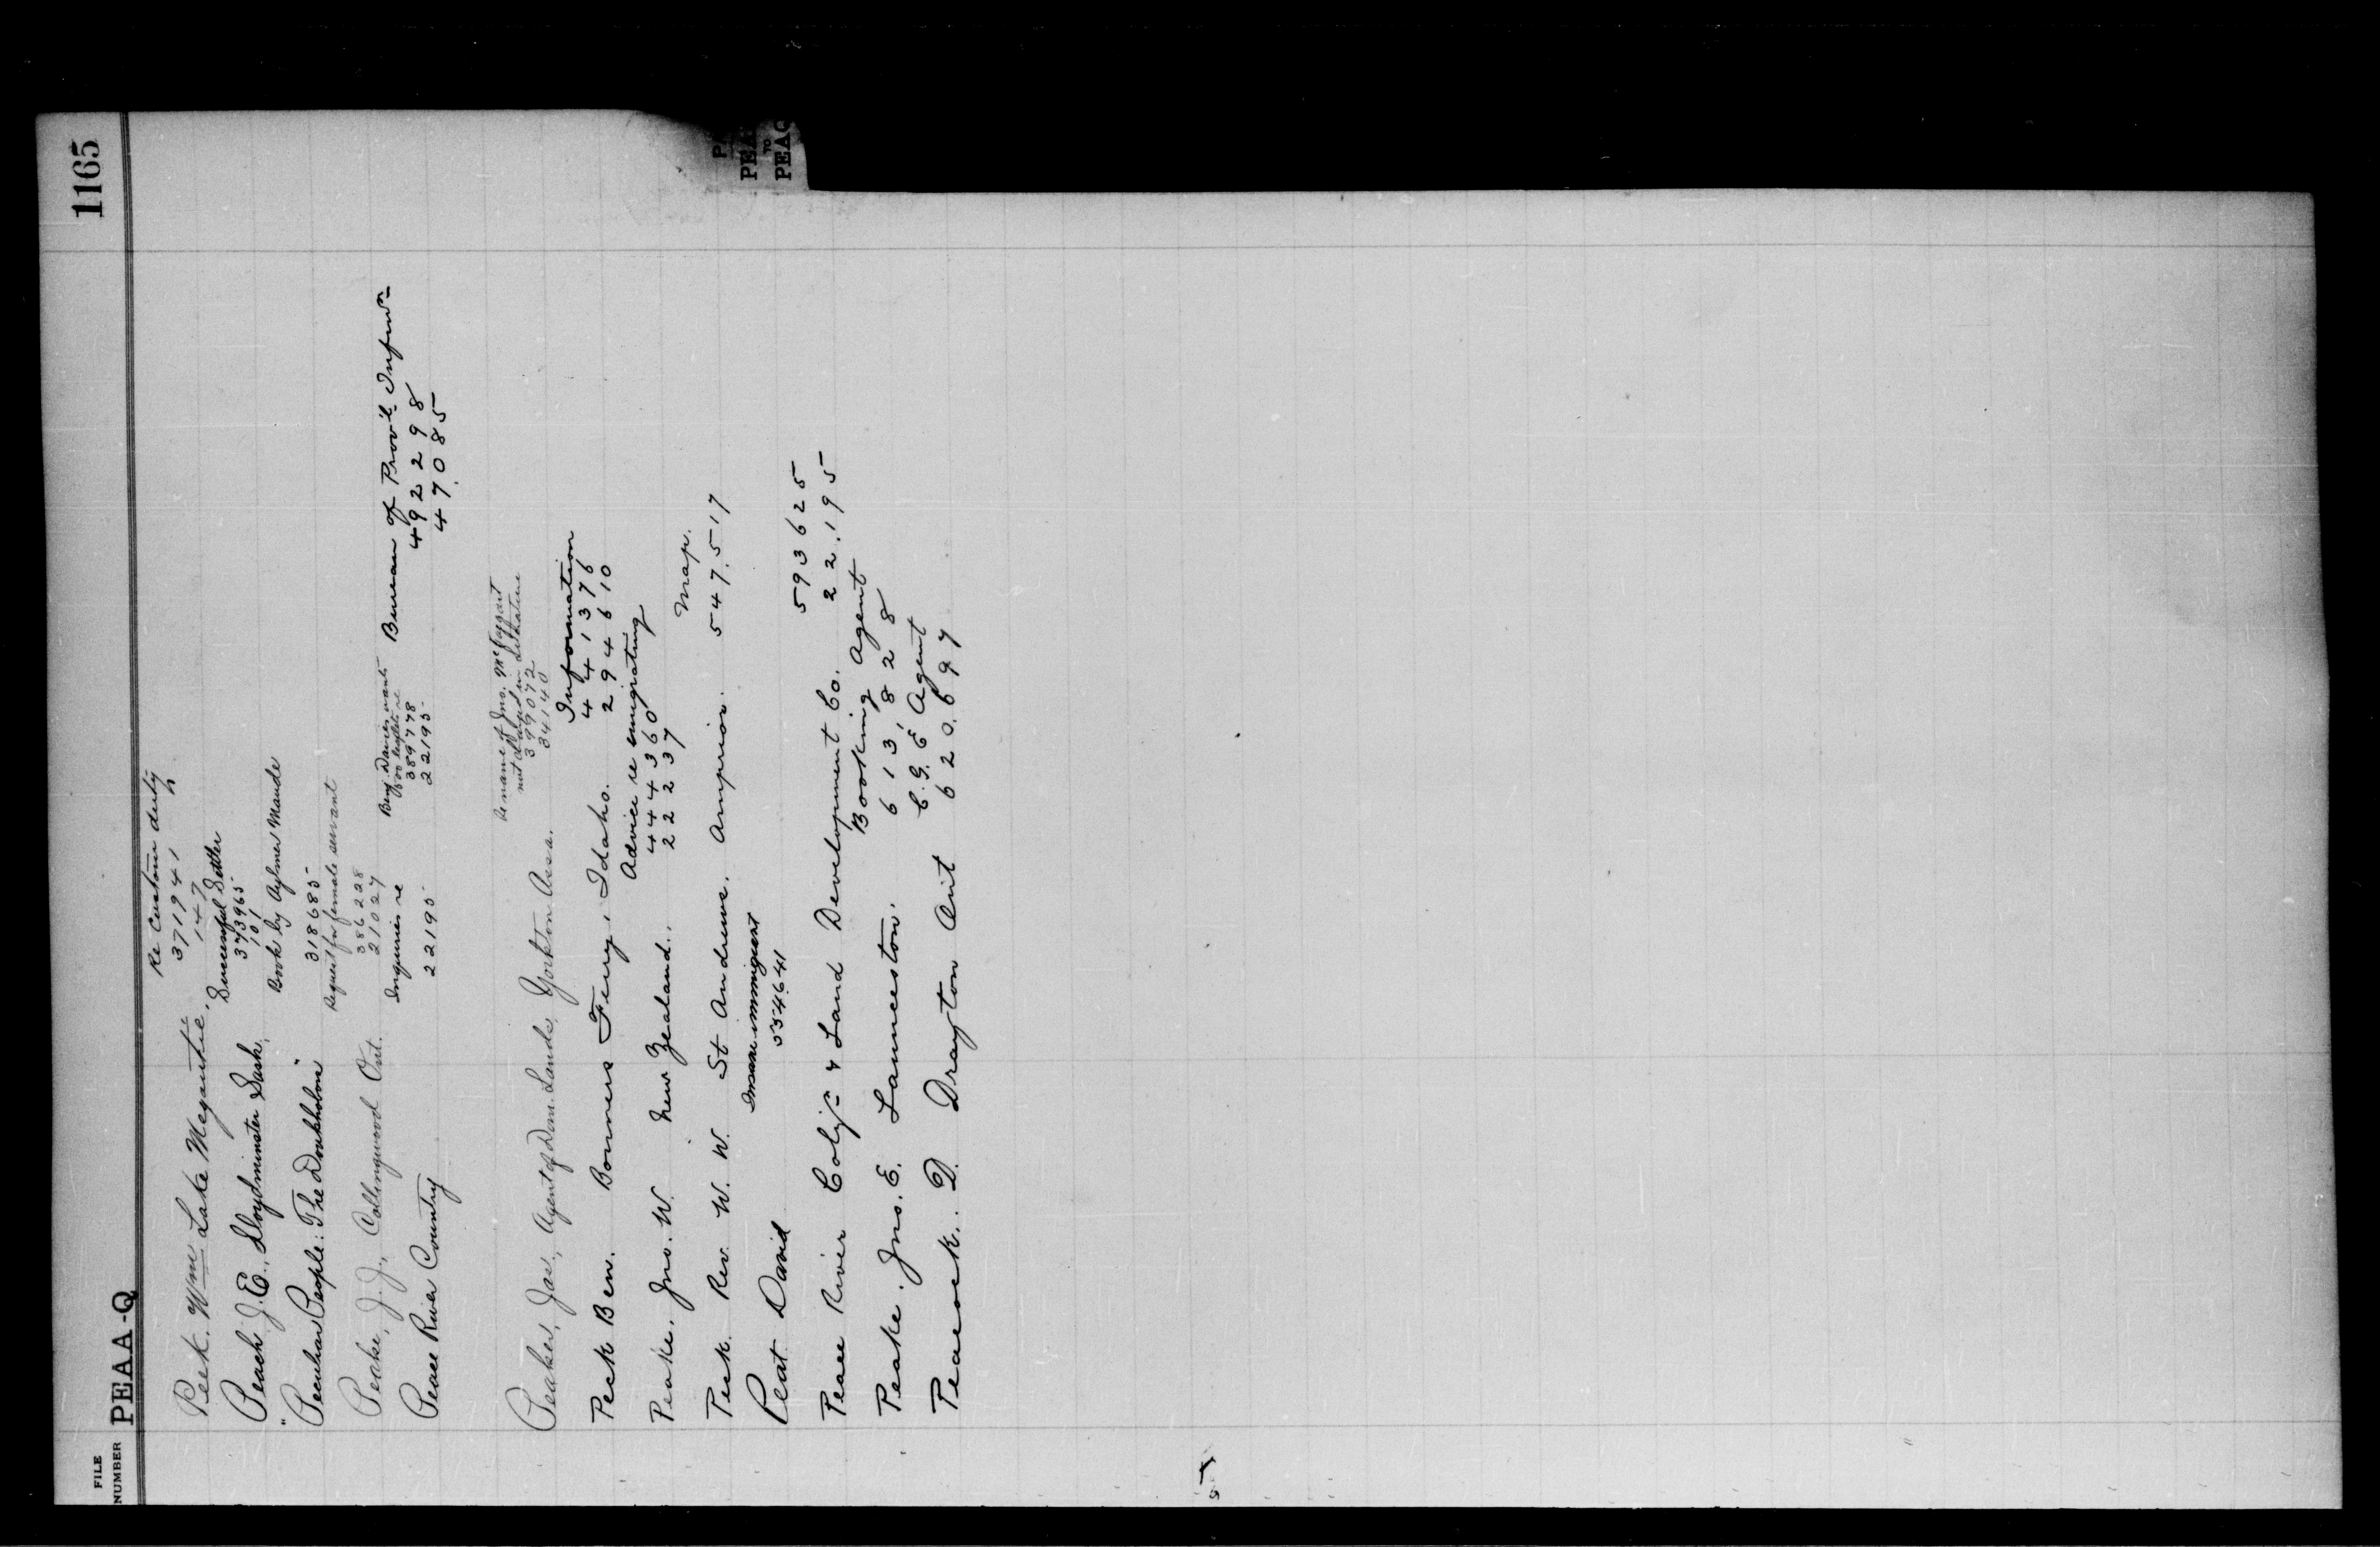 FILE NUMBER PEAA-Q 1165
Re Custom duty
371941
147
Peck. Wm Lake Megantic.
Successful Settler
373965
101
Peach J. E., Lloydminster Sask.
Book by Aylmer Maude
318685
"Peculiar People: The Doukhobors"
Request for female servant
386228
21027
Peake, J. J., Collingwood Ont.
Inquiries re
22195
Benj Davies wants
389778
22195
Bureau of Prov'l Inform
492298
47085
Peace River Country
Re name of Jno. McTaggart
not and in Literature
399072
341440
Peaker, Jas., Agent of Dom. Lands, Yorkton Assa.
Information
441376
294610
Peck Ben. Bonners Ferry, Idaho.
Advice re emigrating
444360
22237
Peake, Jno. W. New Zealand.
Map.
Peck. Rev. W. W. St Andrews. Arnprior. 547,517
Insane immigrant
554641
Peat David
593625
Peace River Col'z'n & Land Development Co. 22,195
Booking Agent
613,828
Peake. Jno. E. Launceston.
C.G.E. Agent
Peacock. D. Drayton Ont 620,697
PEA
TO
PEAQ